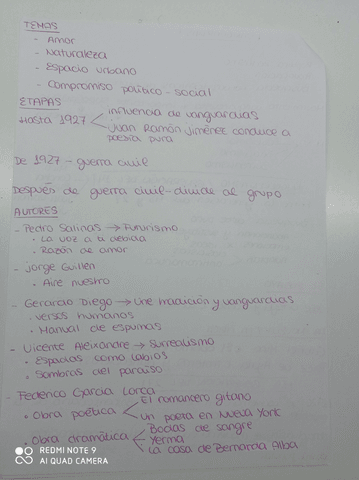 TEMAS
- Amor
- Naturaleza
- Espacio urbano
- Compromiso político - social
ETAPAS
Hasta 1927 < influencia de vanguardias
Juan Ramón Jiménez conduce a poesía pura
De 1927 - guerra civil
Después de guerra civil - divide al grupo
AUTORES
- Pedro Salinas → Futurismo
• La voz a ti debida
• Razón de amor
- Jorge Guillén
• Aire nuestro
- Gerardo Diego → Une tradición y vanguardias
• Versos humanos
• Manual de espumas
- Vicente Aleixandre → Surrealismo
• Espadas como labios
• Sombras del paraíso
- Federico García Lorca
• Obra poética < El romancero gitano
Un poeta en Nueva York
• Obra dramática < Bodas de sangre
Yerma
La casa de Bernarda Alba
REDMI NOTE 9
AI QUAD CAMERA